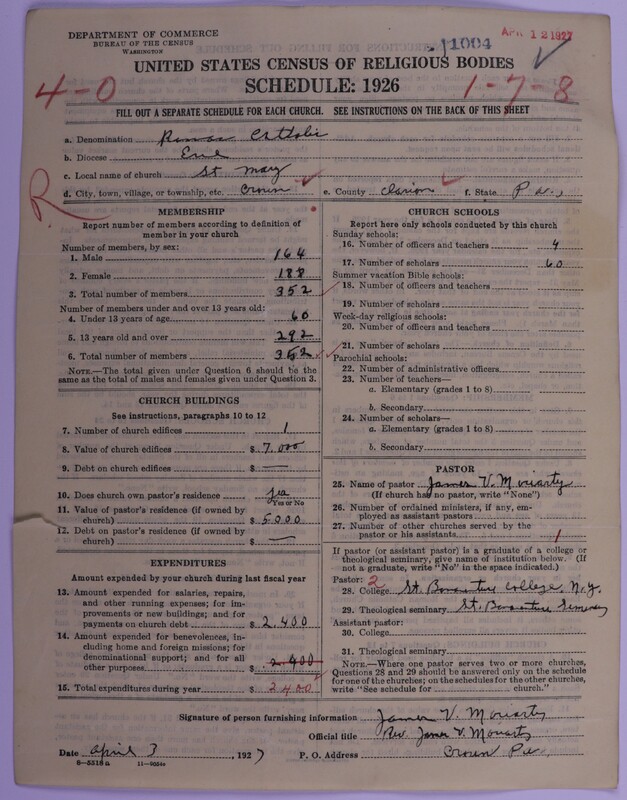 DEPARTMENT OF COMMERCE
BUREAU OF THE CENSUS
WASHINGTON
1004
APR 12 1927
UNITED STATES CENSUS OF RELIGIOUS BODIES
SCHEDULE: 1926
4-0
1-7-8
FILL OUT A SEPARATE SCHEDULE FOR EACH CHURCH. SEE INSTRUCTIONS ON THE BACK OF THIS SHEET
a. Denomination Roman Catholic
b. Diocese Erie
c. Local name of church St. Mary
d. City, town, village, or township, etc. Crown e. County Clarion f. State Pa.,
R
MEMBERSHIP
Report number of members according to definition of member in your church
Number of members, by sex:
1. Male 164
2. Female 188
3. Total number of members 352
Number of members under and over 13 years old:
4. Under 13 years of age 60
5. 13 years old and over 292
6. Total number of members 352
NOTE.—The total given under Question 6 should be the
same as the total of males and females given under Question 3.
CHURCH BUILDINGS
See instructions, paragraphs 10 to 12
7. Number of church edifices 1
8. Value of church edifices $ 7,000
9. Debt on church edifices $ —
10. Does church own pastor's residence yes
Yes or No
11. Value of pastor's residence (if owned by
church) $ 5000
12. Debt on pastor's residence (if owned by
church) $ —
EXPENDITURES
Amount expended by your church during last fiscal year
13. Amount expended for salaries, repairs,
and other running expenses; for im-
provements or new buildings; and for
payments on church debt $ 2,400
14. Amount expended for benevolences, in-
cluding home and foreign missions; for
denominational support; and for all
other purposes $ 2400
15. Total expenditures during year $ 2400
CHURCH SCHOOLS
Report here only schools conducted by this church
Sunday schools:
16. Number of officers and teachers 4
17. Number of scholars 60
Summer vacation Bible schools:
18. Number of officers and teachers
19. Number of scholars
Week-day religious schools:
20. Number of officers and teachers
21. Number of scholars
Parochial schools:
22. Number of administrative officers
23. Number of teachers—
a. Elementary (grades 1 to 8)
b. Secondary
24. Number of scholars—
a. Elementary (grades 1 to 8)
b. Secondary
PASTOR
25. Name of pastor James V. Moriarty
(If church has no pastor, write "None")
26. Number of ordained ministers, if any, em-
ployed as assistant pastors
27. Number of other churches served by the
pastor or his assistants 1
If pastor (or assistant pastor) is a graduate of a college or
theological seminary, give name of institution below. (If
not a graduate, write "No" in the space indicated.)
Pastor: 2
28. College St. Bonaventure College, N.Y.
29. Theological seminary St. Bonaventure Seminary
Assistant pastor:
30. College
31. Theological seminary
NOTE.—Where one pastor serves two or more churches,
Questions 28 and 29 should be answered only on the schedule
for one of the churches; on the schedules for the other churches,
write "See schedule for church."
Signature of person furnishing information James V. Moriarty
Official title Rev. James V. Moriarty
Date April 3, 1927 P. O. Address Crown Pa.
8—5518 a 11—9054a